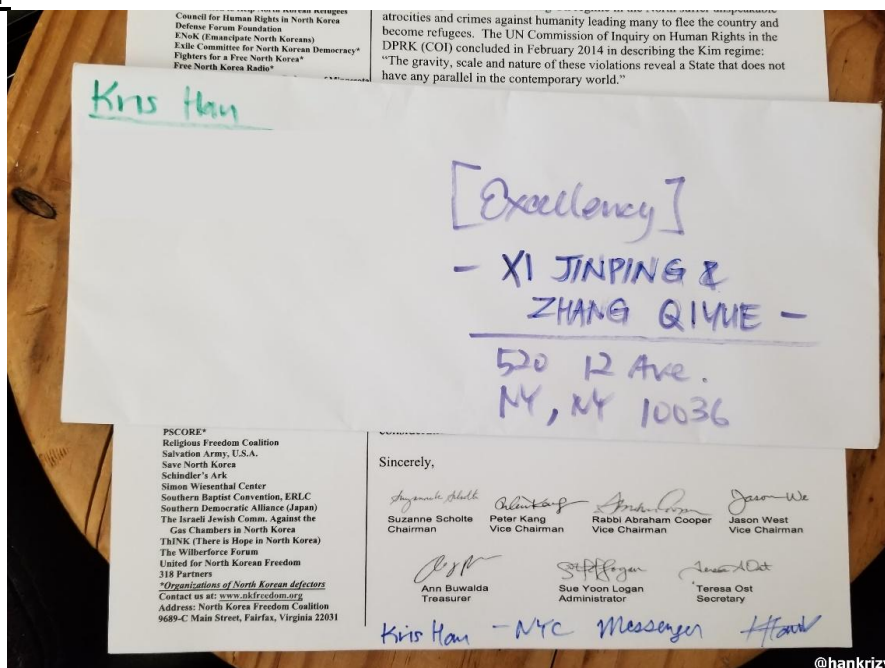 Council for Human Rights in North Korea
Defense Forum Foundation
ENoK (Emancipate North Koreans)
Exile Committee for North Korean Democracy*
Fighters for a Free North Korea*
Free North Korea Radio*
atrocities and crimes against humanity leading many to flee the country and
become refugees. The UN Commission of Inquiry on Human Rights in the
DPRK (COI) concluded in February 2014 in describing the Kim regime:
“The gravity, scale and nature of these violations reveal a State that does not
have any parallel in the contemporary world.”
Kris Han
[Excellency]
- XI JINPING &
ZHANG QIYUE -
520 12 Ave.
NY, NY 10036
PSCORE*
Religious Freedom Coalition
Salvation Army, U.S.A.
Save North Korea
Schindler's Ark
Simon Wiesenthal Center
Southern Baptist Convention, ERLC
Southern Democratic Alliance (Japan)
The Israeli Jewish Comm. Against the
Gas Chambers in North Korea
ThINK (There is Hope in North Korea)
The Wilberforce Forum
United for North Korean Freedom
318 Partners
*Organizations of North Korean defectors
Contact us at: www.nkfreedom.org
Address: North Korea Freedom Coalition
9689-C Main Street, Fairfax, Virginia 22031
Sincerely,
Suzanne Scholte Peter Kang Rabbi Abraham Cooper Jason West
Chairman Vice Chairman Vice Chairman Vice Chairman
Ann Buwalda Sue Yoon Logan Teresa Ost
Treasurer Administrator Secretary
Kris Han - NYC Messenger